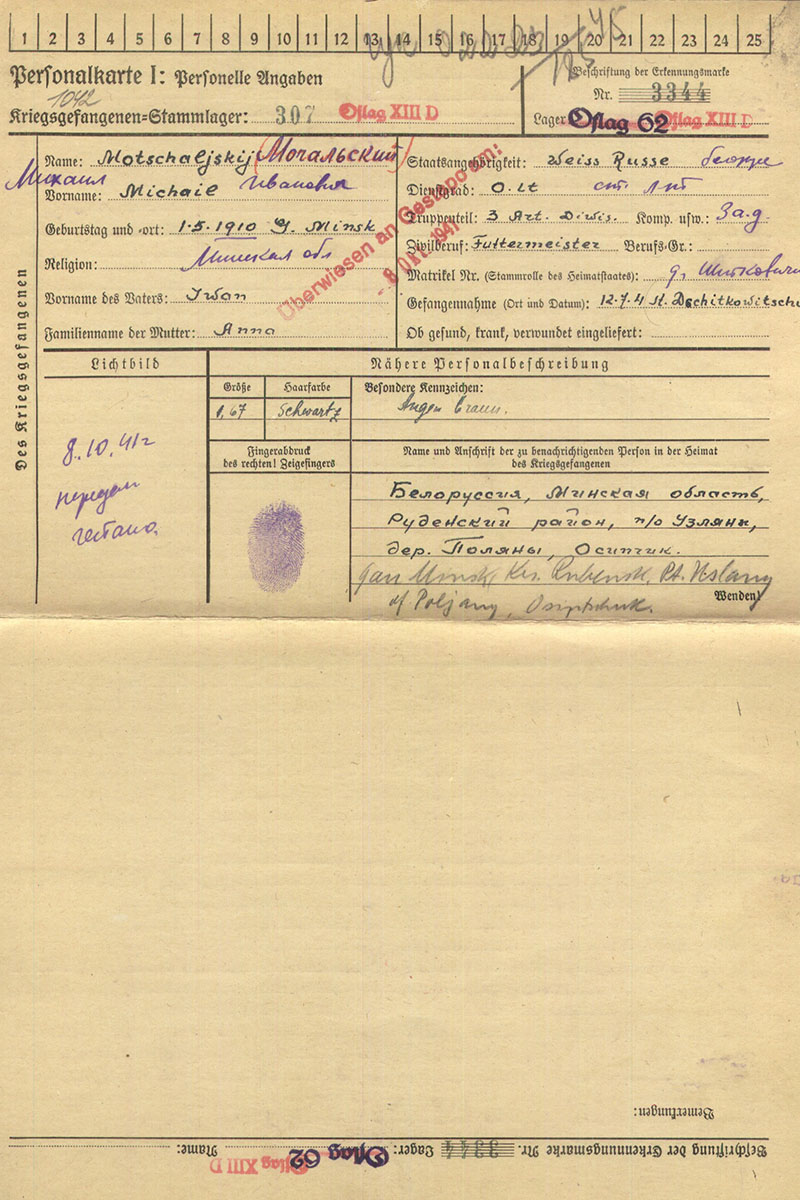 1 2 3 4 5 6 7 8 9 10 11 12 13 14 15 16 17 18 19 20 21 22 23 24 25
Personalkarte I: Personelle Angaben
1042
Kriegsgefangenen=Stammlager: 307 Oflag XIII D
Beschriftung der Erkennungsmarke
Nr. 3344
Lager: Oflag 62 Oflag XIII D
Des Kriegsgefangenen
Name: Motschaljskij (Мочальский)
Михаил Иванович
Vorname: Michail
Geburtstag und =ort: 1.5.1910 G. Minsk
Religion: Минская обл
Vorname des Vaters: Iwan
Familienname der Mutter: Anna
Überwiesen an Gestapo am:
8. Okt. 1941
Staatsangehörigkeit: Weiss Russe белорус
Dienstgrad: O.lt ст. лт
Truppenteil: 3 Art. Divis. Komp. usw.: 3 а.д.
Zivilberuf: Futtermeister Berufs=Gr.:
Matrikel Nr. (Stammrolle des Heimatstaates): д. Житковичи
Gefangennahme (Ort und Datum): 12.7.41 Dschitkowitschi
Ob gesund, krank, verwundet eingeliefert:
Lichtbild
8.10.41г
передан
гестапо.
Nähere Personalbeschreibung
Größe Haarfarbe Besondere Kennzeichen:
1,67 Schwartz Augen braun.
Fingerabdruck
des rechten! Zeigefingers
Name und Anschrift der zu benachrichtigenden Person in der Heimat
des Kriegsgefangenen
Белоруссия, Минская область,
Руденский район, п/о Узляны,
дер. Поляны, Осипчик.
Minsk, Krs. Rudensk, Pt. Uslany
Poljany, Osiptschuk.
Wenden!
Bemerkungen:
Beschriftung der Erkennungsmarke Nr. 3344 Lager: Oflag 62 Name:
Oflag XIII D